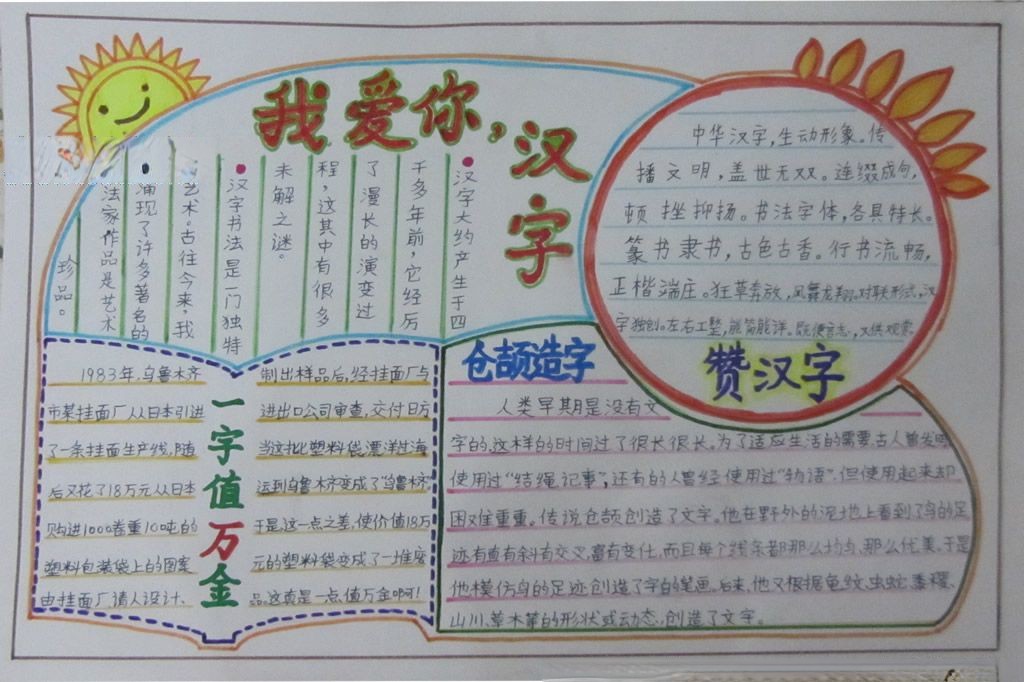 我爱你，汉字
汉字大约产生于四
千多年前，它经历
了漫长的演变过
程，这其中有很多
未解之谜。
汉字书法是一门独特
艺术。古往今来，我
涌现了许多著名的
法家作品是艺术
珍品。
中华汉字，生动形象。传
播文明，盖世无双。连缀成句，
顿挫抑扬。书法字体，各具特长。
篆书隶书，古色古香。行书流畅，
正楷端庄。狂草奔放，凤舞龙翔。对联形式，汉
字独创。左右工整，能简能详。既便言志，又供观赏
赞汉字
一字值万金
1983年，乌鲁木齐
市某挂面厂从日本引进
了一条挂面生产线，随
后又花了18万元从日本
购进1000卷重10吨的
塑料包装袋上的图案
由挂面厂请人设计、
制出样品后，经挂面厂与
进出口公司审查，交付日方
当这批塑料袋漂洋过海
运到乌鲁木齐变成了"乌鲁木齐
于是，这一点之差，使价值18万
元的塑料袋变成了一堆废
品。这真是一点值万金啊！
仓颉造字
人类早期是没有文
字的，这样的时间过了很长很长。为了适应生活的需要，古人曾发明
使用过"结绳记事"，还有的人曾经使用过"物语"，但使用起来却
困难重重。传说仓颉创造了文字。他在野外的泥地上看到了鸟的足
迹有直有斜有交叉，富有变化，而且每个线条都那么均匀，那么优美，于是
他模仿鸟的足迹创造了字的笔画。后来，他又根据龟纹、虫蛇、
山川、草木等的形状或动态，创造了文字。